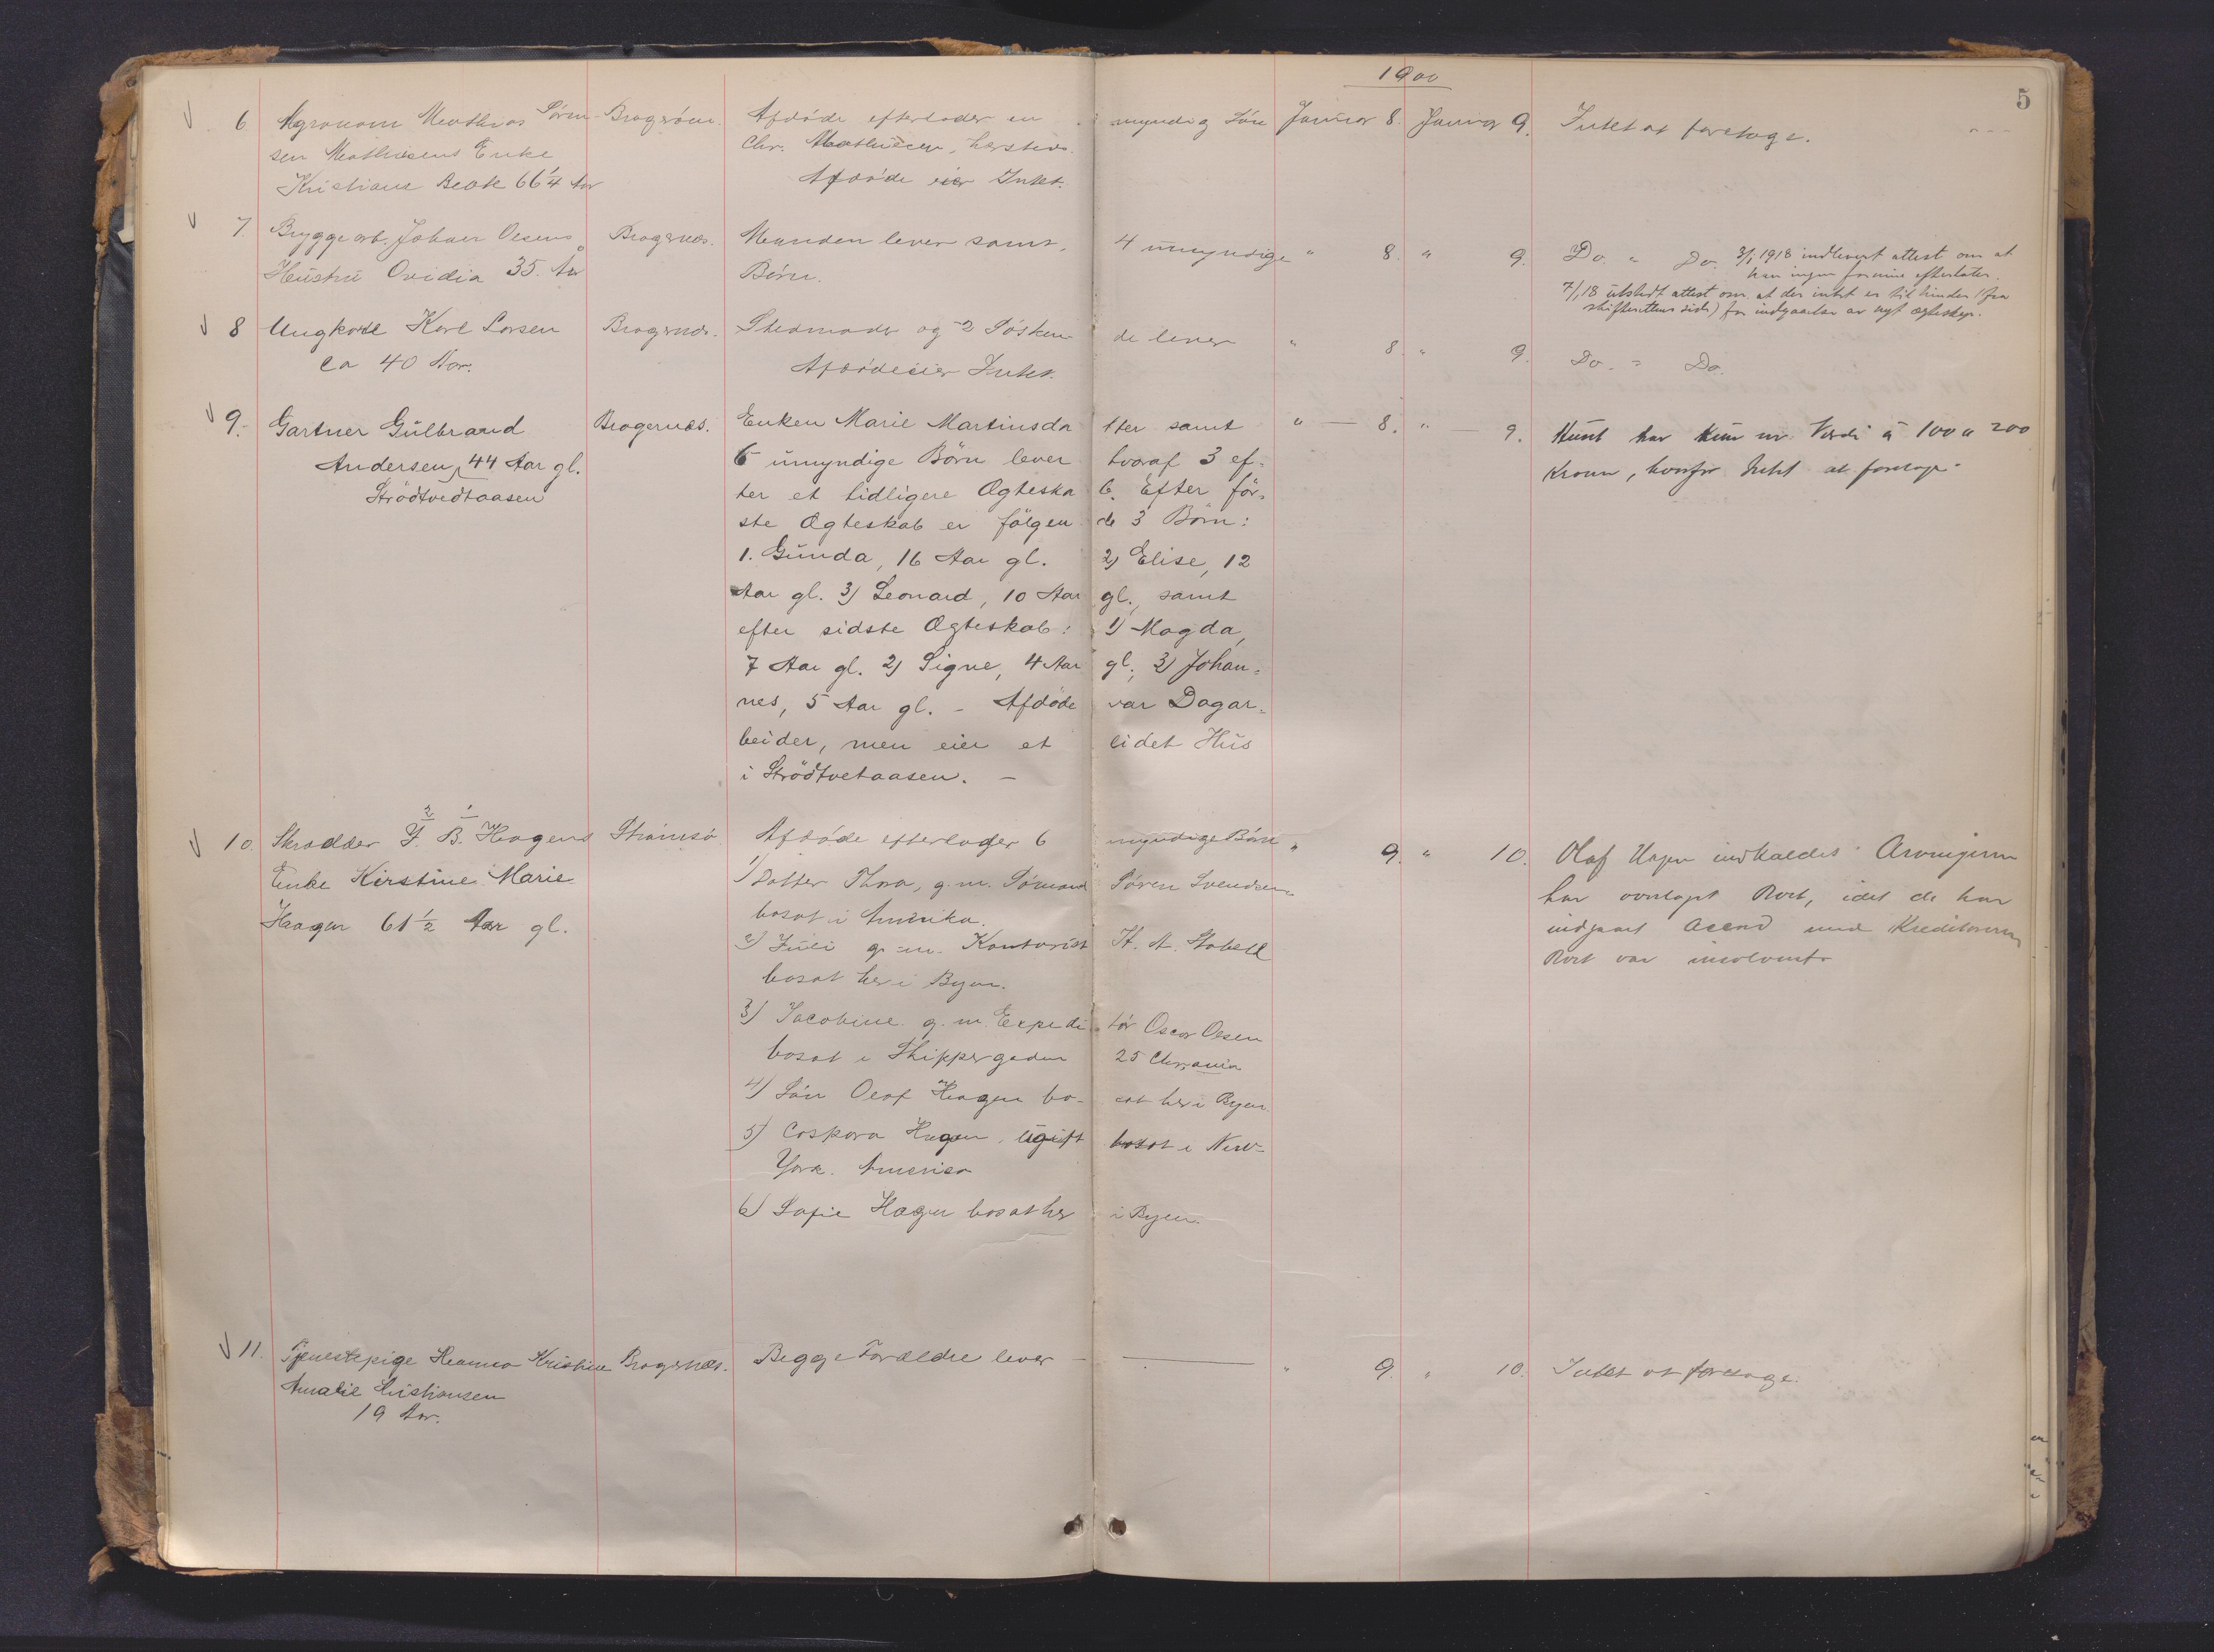 1900
5
6 Agronom Mathias Sören- Bragernæs. Afdöde efterlader en myndig Sön Januar 8. Januar 9. Intet at foretage.
sen Mathisens Enke Chr. Mathiesen, hersteds.
Kristiane Beate 66 1/4 Aar Afdöde eier Intet.
7. Bryggearb. Johan Olsens Bragernæs. Manden lever samt 4 umyndige " 8. " 9. Do. " Do. 3/1 1918 indlevert attest om at
Hustru Ovidia 35. Aar Börn. han ingen formue efterlater.
7/1 18 utstedt attest om at der intet er til hinder (fra
skifterettens side) for indgaaelse av nyt ægteskap.
8 Ungkarl Karl Larsen Bragernæs. Stedmoder og 2 Sösken de lever " 8. " 9. Do. " Do.
ca 40 Aar. Afdöde eier Intet.
9. Gartner Gulbrand Bragernæs. Enken Marie Martinsda tter samt " 8. " 9. Hunt har kun en Værdi á 100 a 200
Andersen, 44 Aar gl. 6 umyndige Börn lever hvoraf 3 ef- Kroner, hvorfor Intet at foretage.
Strödtvedtaasen ter et tidligere Ægteska b. Efter för-
ste Ægteskab er fölgen de 3 Börn:
1. Gunda, 16 Aar gl. 2) Elise, 12
Aar gl. 3) Leonard, 10 Aar gl., samt
efter sidste Ægteskab: 1) Magda,
7 Aar gl. 2) Signe, 4 Aar gl. 3) Johan-
nes, 5 Aar gl. - Afdöde var Dagar-
beider, men eier et lidet Hus
i Strödtvetaasen. -
2 1
10. Skrædder J. B. Haagens Strömsö Afdöde efterlader 6 myndige Börn " 9. " 10. Olaf Hagen indkaldes. Arvingerne
Enke Kirstine Marie 1) Datter Thora, g.m. Sömand Sören Svendsen har overtaget Boet, idet de har
Haagen 61 1/2 Aar gl. bosat i Amerika. indgaaet Accord med Kreditorerne
2) Juli g.m. Kontorist H. A. Stabell Boet var insolvent.
bosat her i Byen.
3) Jacobine g.m. Expedi tör Oscar Olsen
bosat i Skippergaden 25 Chr.ania
4) Sön Olaf Haagen bo- sat her i Byen.
5) Caspara Hagen, ugift bosat i New-
York. Amerika
6) Sofie Hagen bosat her i Byen.
11. Tjenestepige Hanna Kristine Bragernæs. Begge Forældre lever " 9. " 10. Intet at foretage.
Amalie Kristiansen
19 Aar.